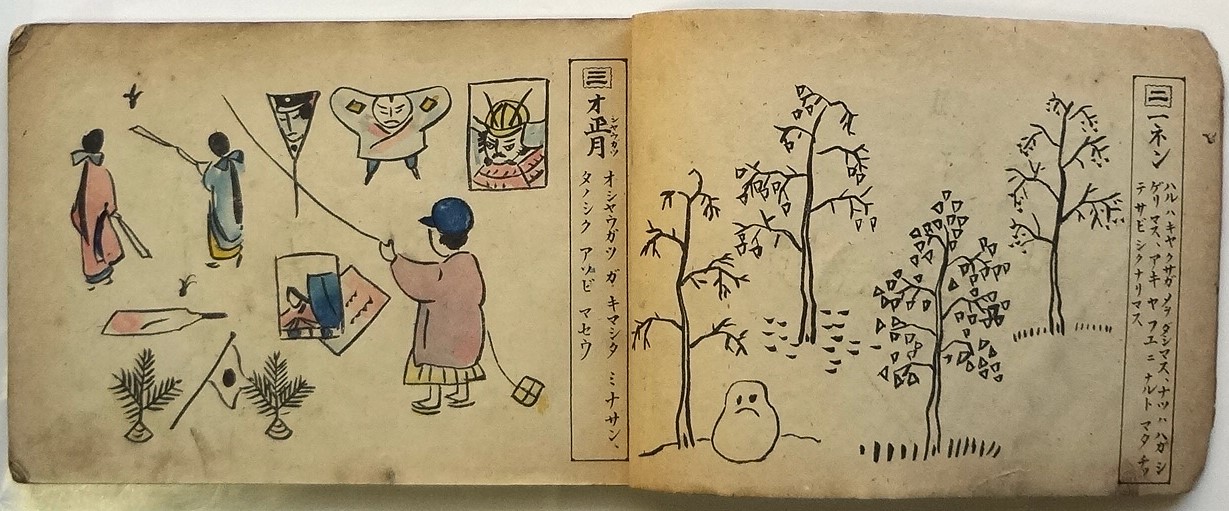 二 一ネン
ハルハキヤクサガ メヲ ダシマス、ナツハ ハガ シ
ゲリマス、アキ ヤ フユニ ナルト マタ チツ
テ サビシクナリマス
三 オ正月
シヤウガツ
オシヤウガツ ガ キマシタ ミナサン、
タノシク アソビ マセウ